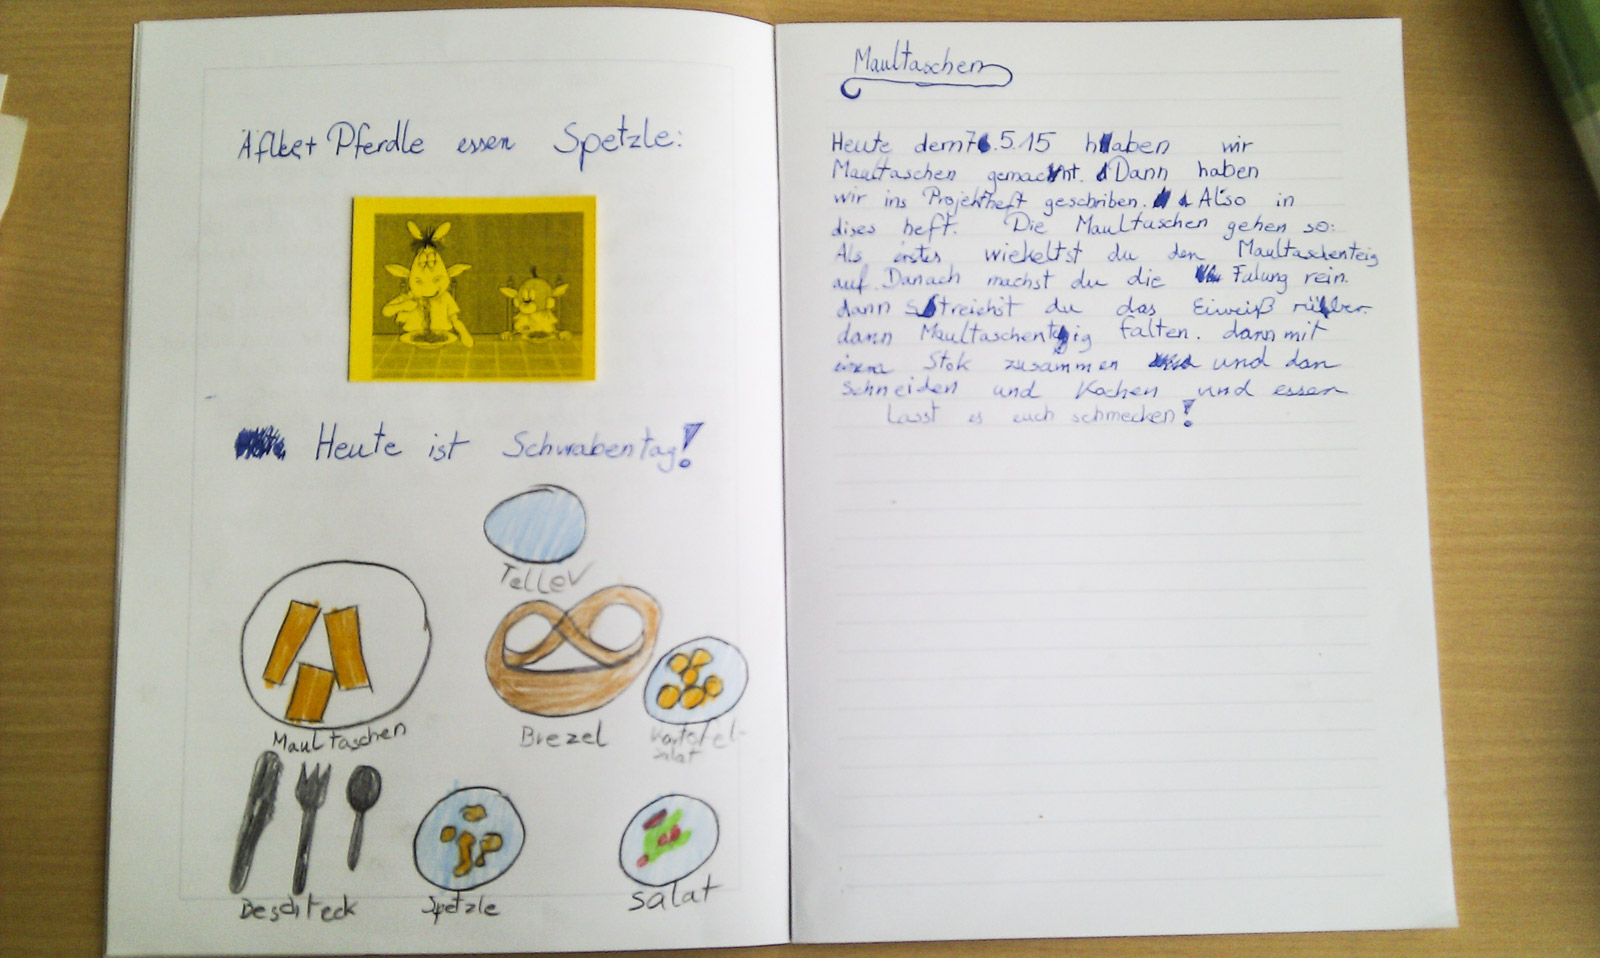 Äffle+ Pferdle essen Spetzle:
Heute ist Schwabentag!
Teller
Maultaschen
Brezel
Kartofel-
salat
Beschteck
Spetzle
Salat
Maultaschen
Heute dem 6.5.15 haben wir
Maultaschen gemacht. Dann haben
wir ins Projektheft geschriben. Also in
dises heft. Die Maultaschen gehen so:
Als erstes wickeltst du den Maultaschenteig
auf. Danach machst du die Fülung rein.
dann Streichst du das Eiweiß rüber.
dann Maultaschenteig falten. dann mit
einem Stok zusammen und dan
schneiden und Kochen und essen
Lasst es euch schmecken!